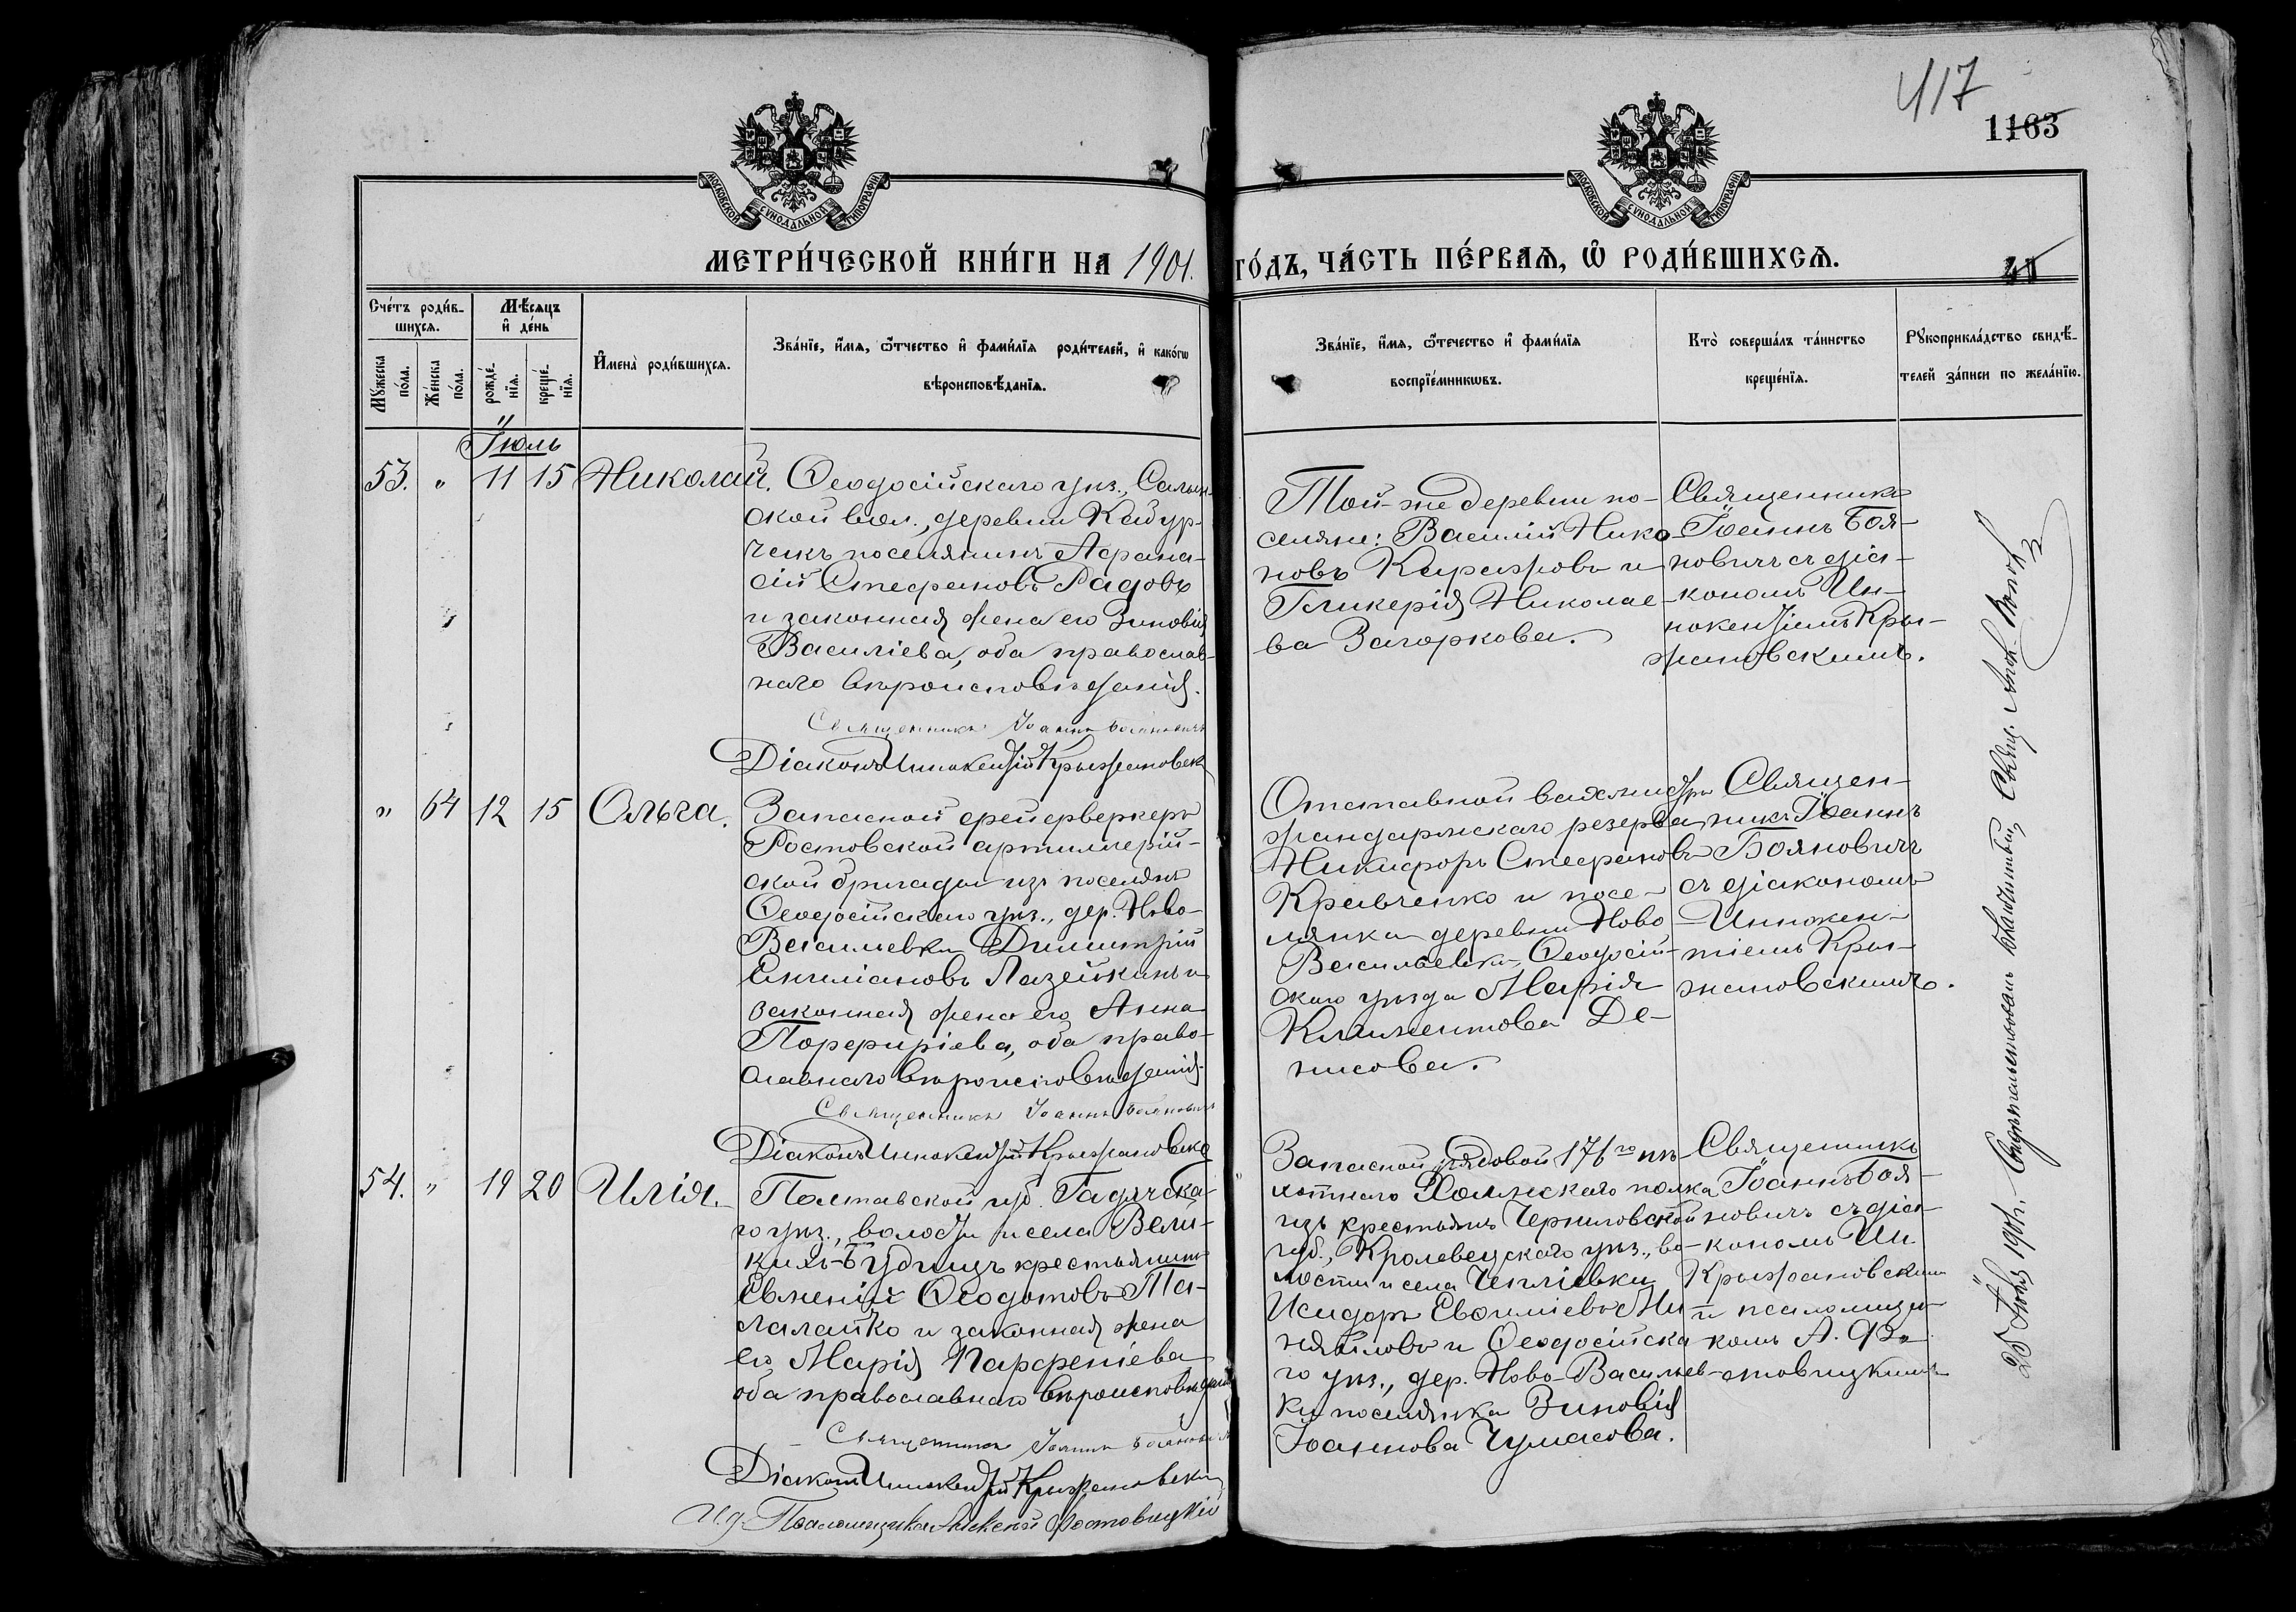 417
1163
МОСКОВСКОЙ СѴНОДАЛЬНОЙ ТИПОГРАФІИ
МОСКОВСКОЙ СѴНОДАЛЬНОЙ ТИПОГРАФІИ
МЕТРИ́ЧЕСКОЙ КНИ́ГИ НА 1901. ГО́ДЪ, ЧА́СТЬ ПЕ́РВАѦ, Ѡ҆ РОДИ́ВШИХСѦ.
Сче́тъ роди́в-
шихсѧ.
Мꙋ́жеска по́ла.
Же́нска по́ла.
Мѣ́сѧцъ
и҆ де́нь
рожде́-нїѧ.
креще́-нїѧ.
И҆мена̀ роди́вшихсѧ.
Зва́нїе, и҆́мѧ, ѻ҆́тчество и҆ фами́лїѧ роди́телей, и҆ како́гѡ
вѣроисповѣ́данїѧ.
Зва́нїе, и҆́мѧ, ѻ҆́течество и҆ фами́лїѧ
воспрїе́мникѡвъ.
Кто̀ соверша́лъ та́инство
креще́нїѧ.
Рꙋкоприкла́дство свидѣ́-
телей за́писи по жела́нїю.
Іюль
53. „ 11 15 Николай. Ѳеодосійскаго уѣз., Салын-
ской вол., деревни Кадур-
чекъ поселянинъ Афана-
сій Стефановъ Радовъ
и законная жена его Зиновія
Василіева, оба православ-
наго вѣроисповѣданія.
Священникъ Іоаннъ Бояновичъ
Діаконъ Иннокентій Крыжановск
Той-же деревни по-
селяне: Василій Нико-
новъ Каражовъ и
Гликерія Николае-
ва Загоркова.
Священникъ
Іоаннъ Боя-
новичъ съ діа-
кономъ Ин-
нокентіемъ Кры-
жановскимъ.
„ 64 12 15 Ольга. Запасной фейерверкеръ
Ростовской артиллерій-
ской бригады изъ поселянъ
Ѳеодосійскаго уѣз., дер. Ново-
Васильевки Димитрій
Емиліановъ Лазейкинъ и
законная жена его Анна
Порфиріева, оба право-
славнаго вѣроисповѣданія.
Священникъ Іоаннъ Бояновичъ
Діаконъ Иннокентій Крыжановскі
Отставной вахмистръ
жандармскаго резерва
Никифоръ Стефановъ
Кравченко и посе-
лянка деревни Ново-
Васильевки, Ѳеодосій-
скаго уѣзда Марія
Климентова Де-
нисова.
Священ-
никъ Іоаннъ
Бояновичъ
съ діакономъ
Иннокен-
тіемъ Кры-
жановскимъ.
54. „ 19 20 Илія. Полтавской губ. Гадячска-
го уѣз., волости и села Вели-
кихъ-Будищъ крестьянинъ
Евменій Ѳеодотовъ Па-
ламайко и законная жена
его Марія Парфеніева
оба православнаго вѣроисповѣданія
Священникъ Іоаннъ Бояновичъ
Діаконъ Иннокентій Крыжановскі
И.д. Псаломщика Алексѣй Фостовицкій
Запасной рядовой 176го пѣ-
хотнаго Холмскаго полка
изъ крестьянъ Черниговской
губ., Кролевецкаго уѣз., во-
лости и села Чепліевки
Исидоръ Евѳиміевъ Ми-
няйловъ и Ѳеодосійска-
го уѣз., дер. Ново-Васильев-
ки поселянка Зиновія
Іоаннова Чумасова.
Священникъ
Іоаннъ Боя-
новичъ съ діа-
кономъ Ин.
Крыжановскимъ
и псаломщи-
комъ А. Фо-
стовицкимъ
Свидѣтельствовалъ Благочинный, Свящ.